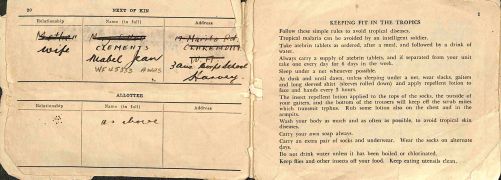 20 NEXT OF KIN
Relationship Name (in full) Address
wife CLEMENTS CLAREMONT
Mabel Jean
WF45333 AWAS
ALLOTTEE
Relationship Name (in full) Address
as above
1
KEEPING FIT IN THE TROPICS
Follow these simple rules to avoid tropical diseases.
Tropical malaria can be avoided by an intelligent soldier.
Take atebrin tablets as ordered, after a meal, and followed by a drink of
water.
Always carry a supply of atebrin tablets, and if separated from your unit
take one every day for 6 days in the week.
Sleep under a net whenever possible.
At dusk and until dawn, unless sleeping under a net, wear slacks, gaiters
and long sleeved shirt (sleeves rolled down) and apply repellent lotion to
face and hands every 3 hours.
The insect repellent lotion applied to the tops of the socks, the outside of
your gaiters, and the bottom of the trousers will keep off the scrub mites
which transmit typhus. Rub some lotion also on the chest and in the
armpits.
Wash your body as much and as often as possible, to avoid tropical skin
diseases.
Carry your own soap always.
Carry an extra pair of socks and underwear. Wear the socks on alternate
days.
Do not drink water unless it has been boiled or chlorinated.
Keep flies and other insects off your food. Keep eating utensils clean.